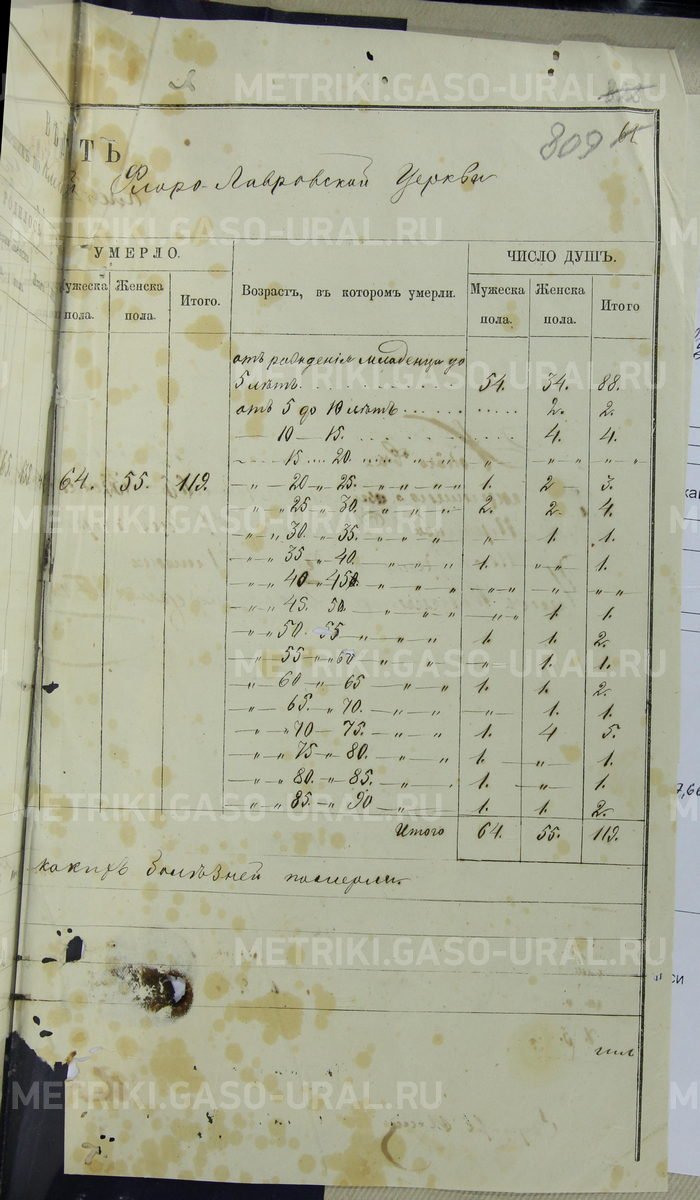 METRIKI.GASO-URAL.RU
809
61
ТЬ
Флоро-Лавровской Церкви
УМЕРЛО. ЧИСЛО ДУШЪ.
Мужеска пола. Женска пола. Итого. Возрастъ, въ которомъ умерли. Мужеска пола. Женска пола. Итого
отъ рожденія младенца до
5 лѣтъ. 54. 34. 88.
отъ 5 до 10 лѣтъ ...... ..... 2. 2.
— 10 — 15. 4. 4.
15 .... 20. „ „ „ „
64. 55. 119. „ — 20 „ 25. 1. 2 3.
„ „ 25 „ 30. 2. 2. 4.
„ „ 30. „ 35. „ 1. 1.
„ „ 35 „ 40. 1. „ „ 1.
„ „ 40 „ 45. „ „ „ „
„ „ 45. 50. „ „ 1. 1.
„ „ 50. 55 1. 1. 2.
„ — 55 — „ 60 „ 1. 1.
„ — 60 „ 65 1. 1. 2.
„ — 65. „ 70. „ 1. 1.
„ — „ 70 — 75. 1. 4 5.
„ „ 75 „ 80. 1. „ 1.
„ „ 80. „ 85. 1. „ 1.
„ „ 85. — „ 90 1. 1. 2.
Итого 64. 55. 119.
какихъ болѣзней померли.